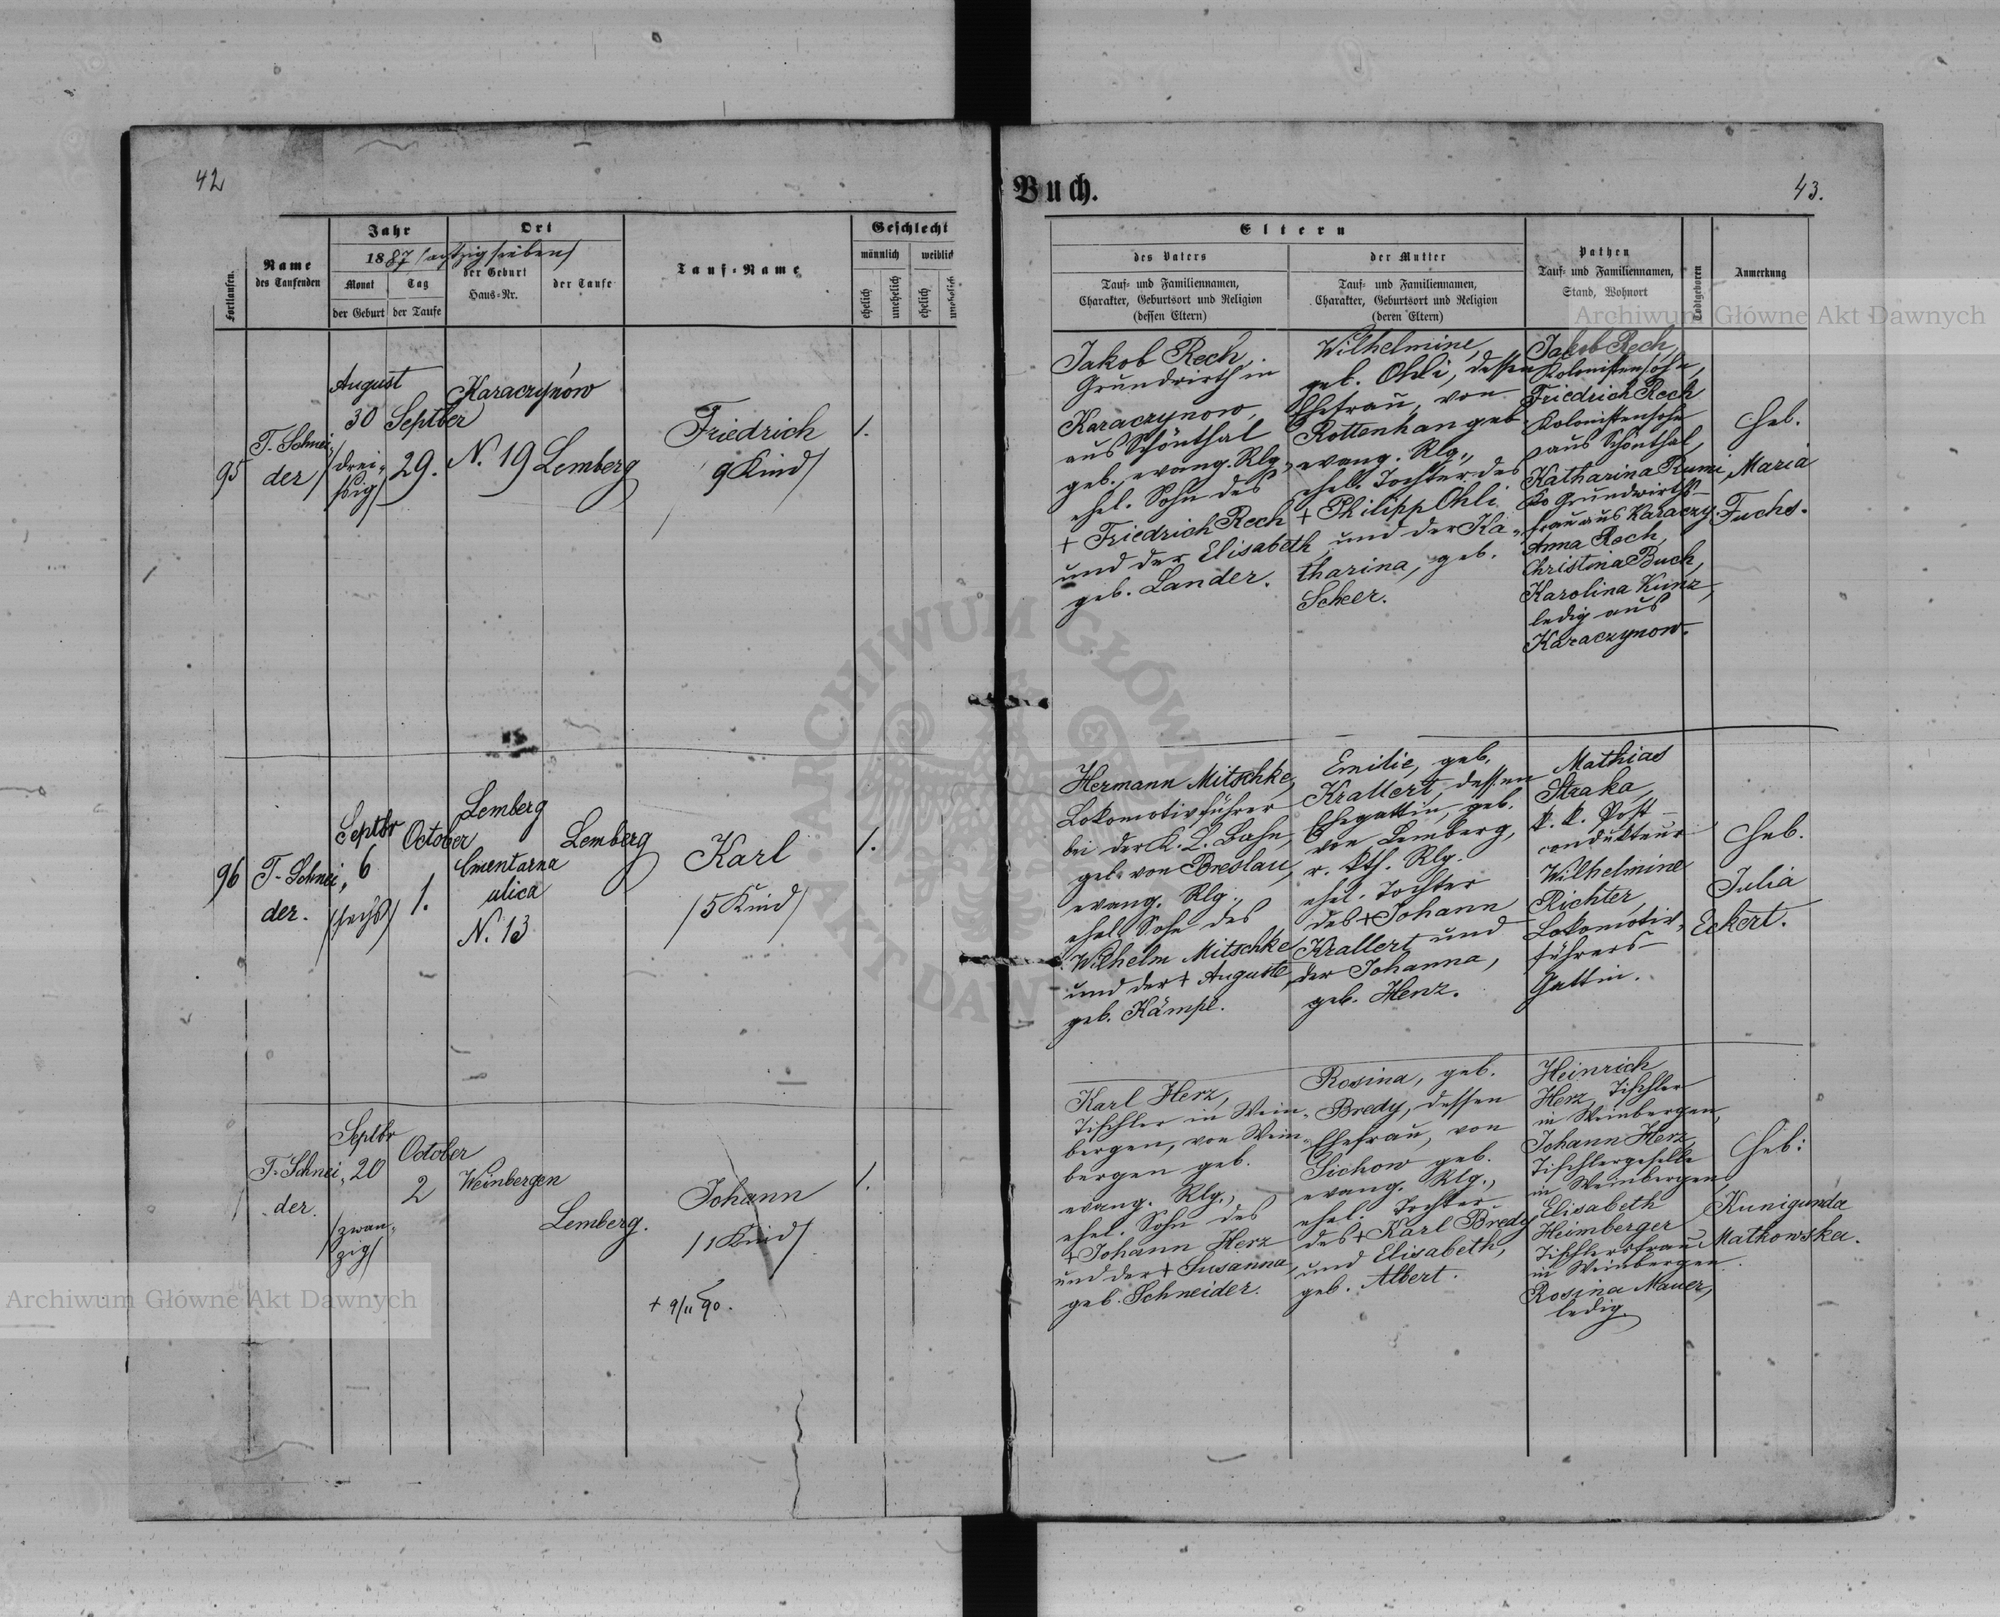 42
Buch.
43.
Fortlaufen.
Name
des Taufenden
Jahr
1887 /achtzig sieben/
Monat
Tag
der Geburt
der Taufe
Ort
der Geburt
Haus-Nr.
der Taufe
Tauf-Name
Geschlecht
männlich
weiblich
ehelich
unehelich
ehelich
unehelich
Eltern
des Vaters
Tauf- und Familiennamen,
Charakter, Geburtsort und Religion
(dessen Eltern)
der Mutter
Tauf- und Familiennamen,
Charakter, Geburtsort und Religion
(deren Eltern)
Pathen
Tauf- und Familiennamen,
Stand, Wohnort
Todtgeboren
Anmerkung
Archiwum Główne Akt Dawnych
95
T. Schnei-
der
August
30
/drei-
ßig/
Septber
29.
Karaczynów
N. 19
Lemberg
Friedrich
9 Kind/
1.
Jakob Rech,
Grundwirth in
Karaczynow,
aus Schönthal
geb., evang. Rlg.,
ehel. Sohn des
+ Friedrich Rech
und der Elisabeth
geb. Lander.
Wilhelmine,
geb. Ohli, dessen
Ehefrau, von
Rottenhan geb.
evang. Rlg.,
ehel. Tochter des
+ Philipp Ohli
und der Ka-
tharina, geb.
Scheer.
Jakob Rech,
Kolonistensohn,
Friedrich Rech
Kolonistensohn
aus Schönthal,
Katharina Rumi
Grundwirths-
frau aus Karaczy.
Anna Rech,
Christina Buch,
Karolina Kunz,
ledig aus
Karaczynow.
Heb.
Maria
Fuchs.
96
T. Schnei-
der.
Septbr
6
/sechs/
October
1.
Lemberg
Cmentarna
ulica
N. 13
Lemberg
Karl
/5 Kind/
1.
Hermann Mitschke,
Lokomotivführer
bei der K. L. Bahn,
geb. von Breslau,
evang. Rlg.,
ehel. Sohn des
Wilhelm Mitschke
und der + Auguste,
geb. Kämpe.
Emilie, geb.
Krallert, dessen
Ehegattin, geb.
von Lemberg,
r. kth. Rlg.
ehel. Tochter
des + Johann
Krallert und
der Johanna,
geb. Henz.
Mathias
Straka,
k. k. Post-
condukteur
Wilhelmine
Richter,
Lokomotiv-
führers-
Gattin.
Heb.
Julia
Eckert.
T. Schnei-
der.
Septbr
20
/zwan-
zig/
October
2
Weinbergen
Lemberg.
Johann
/1 Kind/
+ 9/11 90.
1.
Karl Herz,
Tischler in Wein-
bergen, von Wein-
bergen geb.
evang. Rlg.,
ehel. Sohn des
+ Johann Herz
und der + Susanna,
geb. Schneider.
Rosina, geb.
Bredy, dessen
Ehefrau, von
Sichow geb.
evang. Rlg.,
ehel. Tochter
des + Karl Bredy
und Elisabeth,
geb. Albert.
Heinrich
Herz, Tischler
in Weinbergen,
Johann Herz,
Tischlergeselle
in Weinbergen,
Elisabeth
Heimberger
Tischlersfrau
in Weinbergen.
Rosina Mauer,
ledig
Heb:
Kunigunda
Matkowska.
Archiwum Główne Akt Dawnych
ARCHIWUM GŁÓWNE AKT DAWNYCH